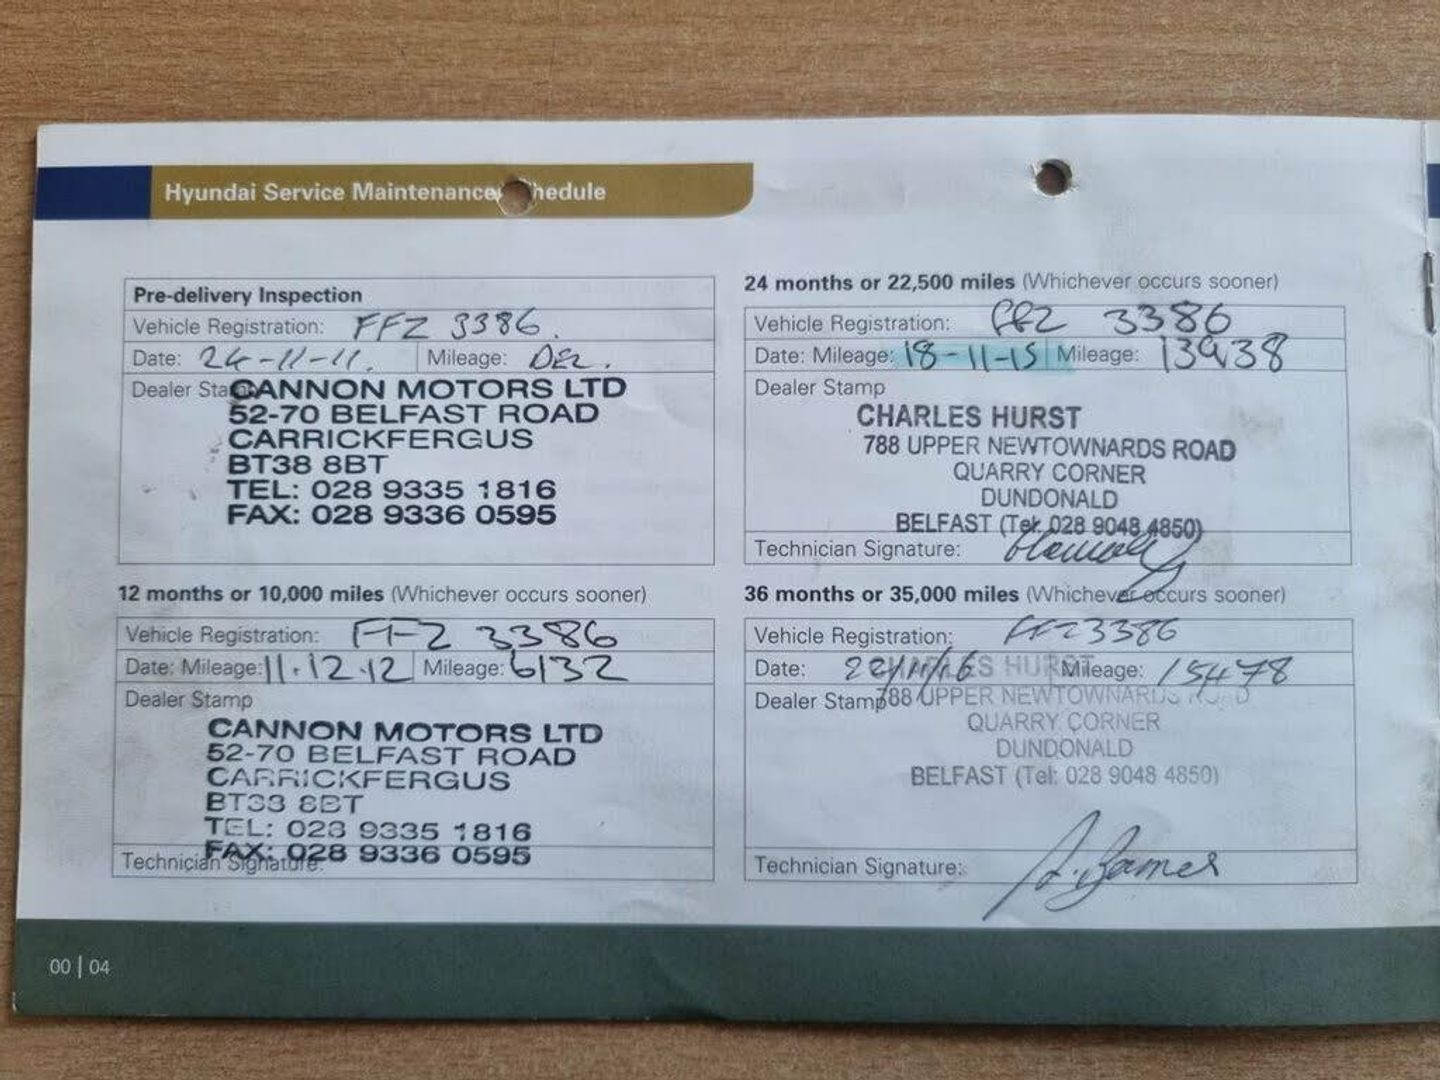 Hyundai Service Maintenance hedule
Pre-delivery Inspection
Vehicle Registration: FFZ 3386.
Date: 24-11-11. Mileage: DEL.
Dealer Sta
CANNON MOTORS LTD
52-70 BELFAST ROAD
CARRICKFERGUS
BT38 8BT
TEL: 028 9335 1816
FAX: 028 9336 0595
12 months or 10,000 miles (Whichever occurs sooner)
Vehicle Registration: FFZ 3386
Date: Mileage: 11.12.12 Mileage: 6132
Dealer Stamp
CANNON MOTORS LTD
52-70 BELFAST ROAD
CARRICKFERGUS
BT38 8BT
TEL: 028 9335 1816
FAX: 028 9336 0595
Technician Signature:
24 months or 22,500 miles (Whichever occurs sooner)
Vehicle Registration: FFZ 3386
Date: Mileage: 18-11-15 Mileage: 13938
Dealer Stamp
CHARLES HURST
788 UPPER NEWTOWNARDS ROAD
QUARRY CORNER
DUNDONALD
BELFAST (Tel: 028 9048 4850)
Technician Signature:
36 months or 35,000 miles (Whichever occurs sooner)
Vehicle Registration: FFZ3386
Date: 22/11/16 Mileage: 15478
CHARLES HURST
Dealer Stamp
788 UPPER NEWTOWNARDS ROAD
QUARRY CORNER
DUNDONALD
BELFAST (Tel: 028 9048 4850)
Technician Signature:
00 | 04